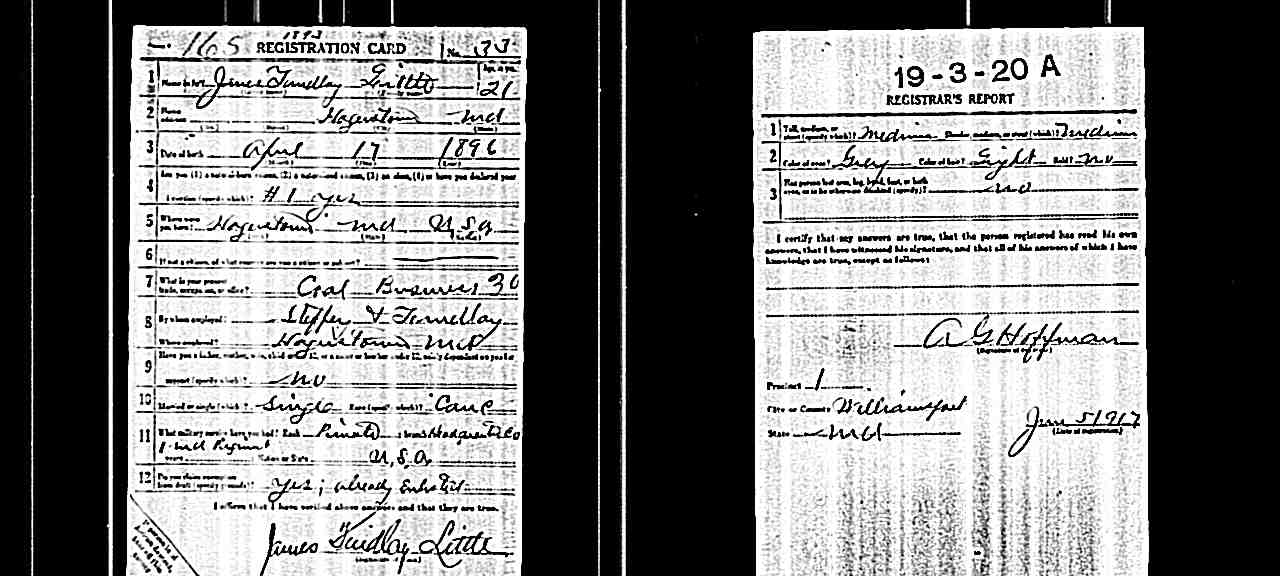 165 1893 REGISTRATION CARD No. 33
1 Name in full James Findlay Age, in yrs. 21
2 Home address Hagerstown Md
3 Date of birth April 17 1896
4 Are you (1) a natural-born citizen, (2) a naturalized citizen, (3) an alien, (4) or have you declared your
intention (specify which)? #1 yes
5 Where were you born? Hagerstown Md U.S.A.
6 If not a citizen, of what country are you a citizen or subject?
7 What is your present trade, occupation, or office? Coal Business 30
8 By whom employed? & Findlay
Where employed? Hagerstown Md
9 Have you a father, mother, wife, child under 12, or a sister or brother under 12, solely dependent on you for
support (specify which)? No
10 Married or single (which)? Single Race (specify which)? Cauc
11 What military service have you had? Rank Private ; branch
1 Md Regmnt
years Nation or State U.S.A.
12 Do you claim exemption from draft (specify grounds)? Yes; already Enlisted
I affirm that I have verified above answers and that they are true.
James Findlay Little
19-3-20 A
REGISTRAR'S REPORT
1 Tall, medium, or short (specify which)? Medium Slender, medium, or stout (which)? Medium
2 Color of eyes? Grey Color of hair? Light Bald? No
3 Has person lost arm, leg, hand, foot, or both eyes, or is he otherwise disabled (specify)? No
I certify that my answers are true, that the person registered has read his own
answers, that I have witnessed his signature, and that all of his answers of which I have
knowledge are true, except as follows:
A G Hoffman
(Signature of registrar)
Precinct 1
City or County Williamsport
State Md
Jun 5 1917
(Date of registration)